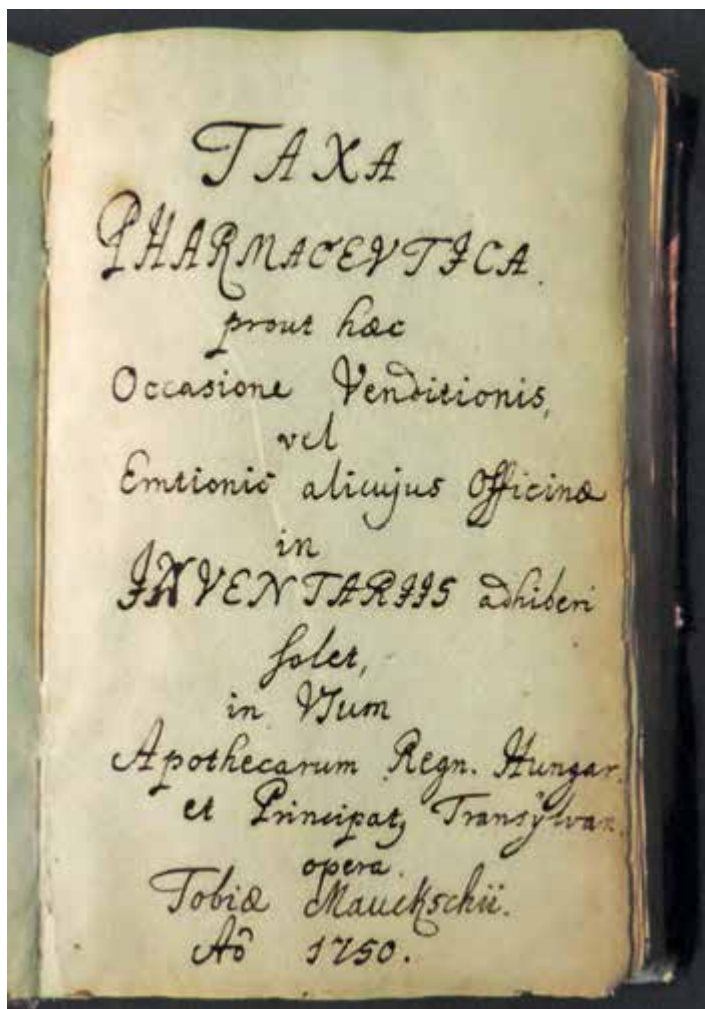 TAXA
PHARMACEVTICA
prout hæc
Occasione Venditionis,
vel
Emtionis alicujus Officinæ
in
INVENTARIIS adhiberi
solet,
in Usum
Apothecarum Regn. Hungar.
et Principatq Transÿlvan.
opera.
Tobiæ Mauckschii.
Aô 1750.